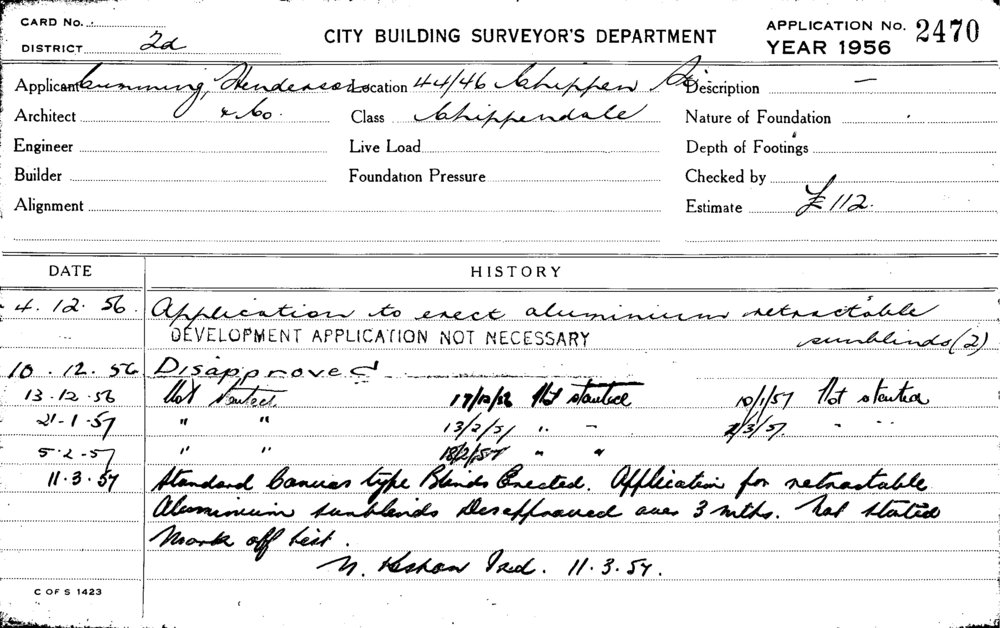 CARD No.
DISTRICT 2d
CITY BUILDING SURVEYOR'S DEPARTMENT
APPLICATION No. 2470
YEAR 1956
Applicant Cumming, Henderson Location 44/46 Chippen St Description –
Architect & Co. Class Chippendale Nature of Foundation
Engineer Live Load Depth of Footings
Builder Foundation Pressure Checked by
Alignment Estimate £112.
DATE HISTORY
4.12.56. Application to erect aluminium retractable
DEVELOPMENT APPLICATION NOT NECESSARY sunblinds (2)
10.12.56 Disapproved
13.12.56 Not started 17/12/56 Not started 10/1/57 Not started
21-1-57 " " 13/2/57 " " 2/3/57. " "
5-2-57 " " 18/2/57 " "
11.3.57 Standard Canvas type Blinds Erected. Application for retractable
Aluminium sunblinds Disapproved over 3 mths. Not started
Mark off list.
11.3.57.
C OF S 1423